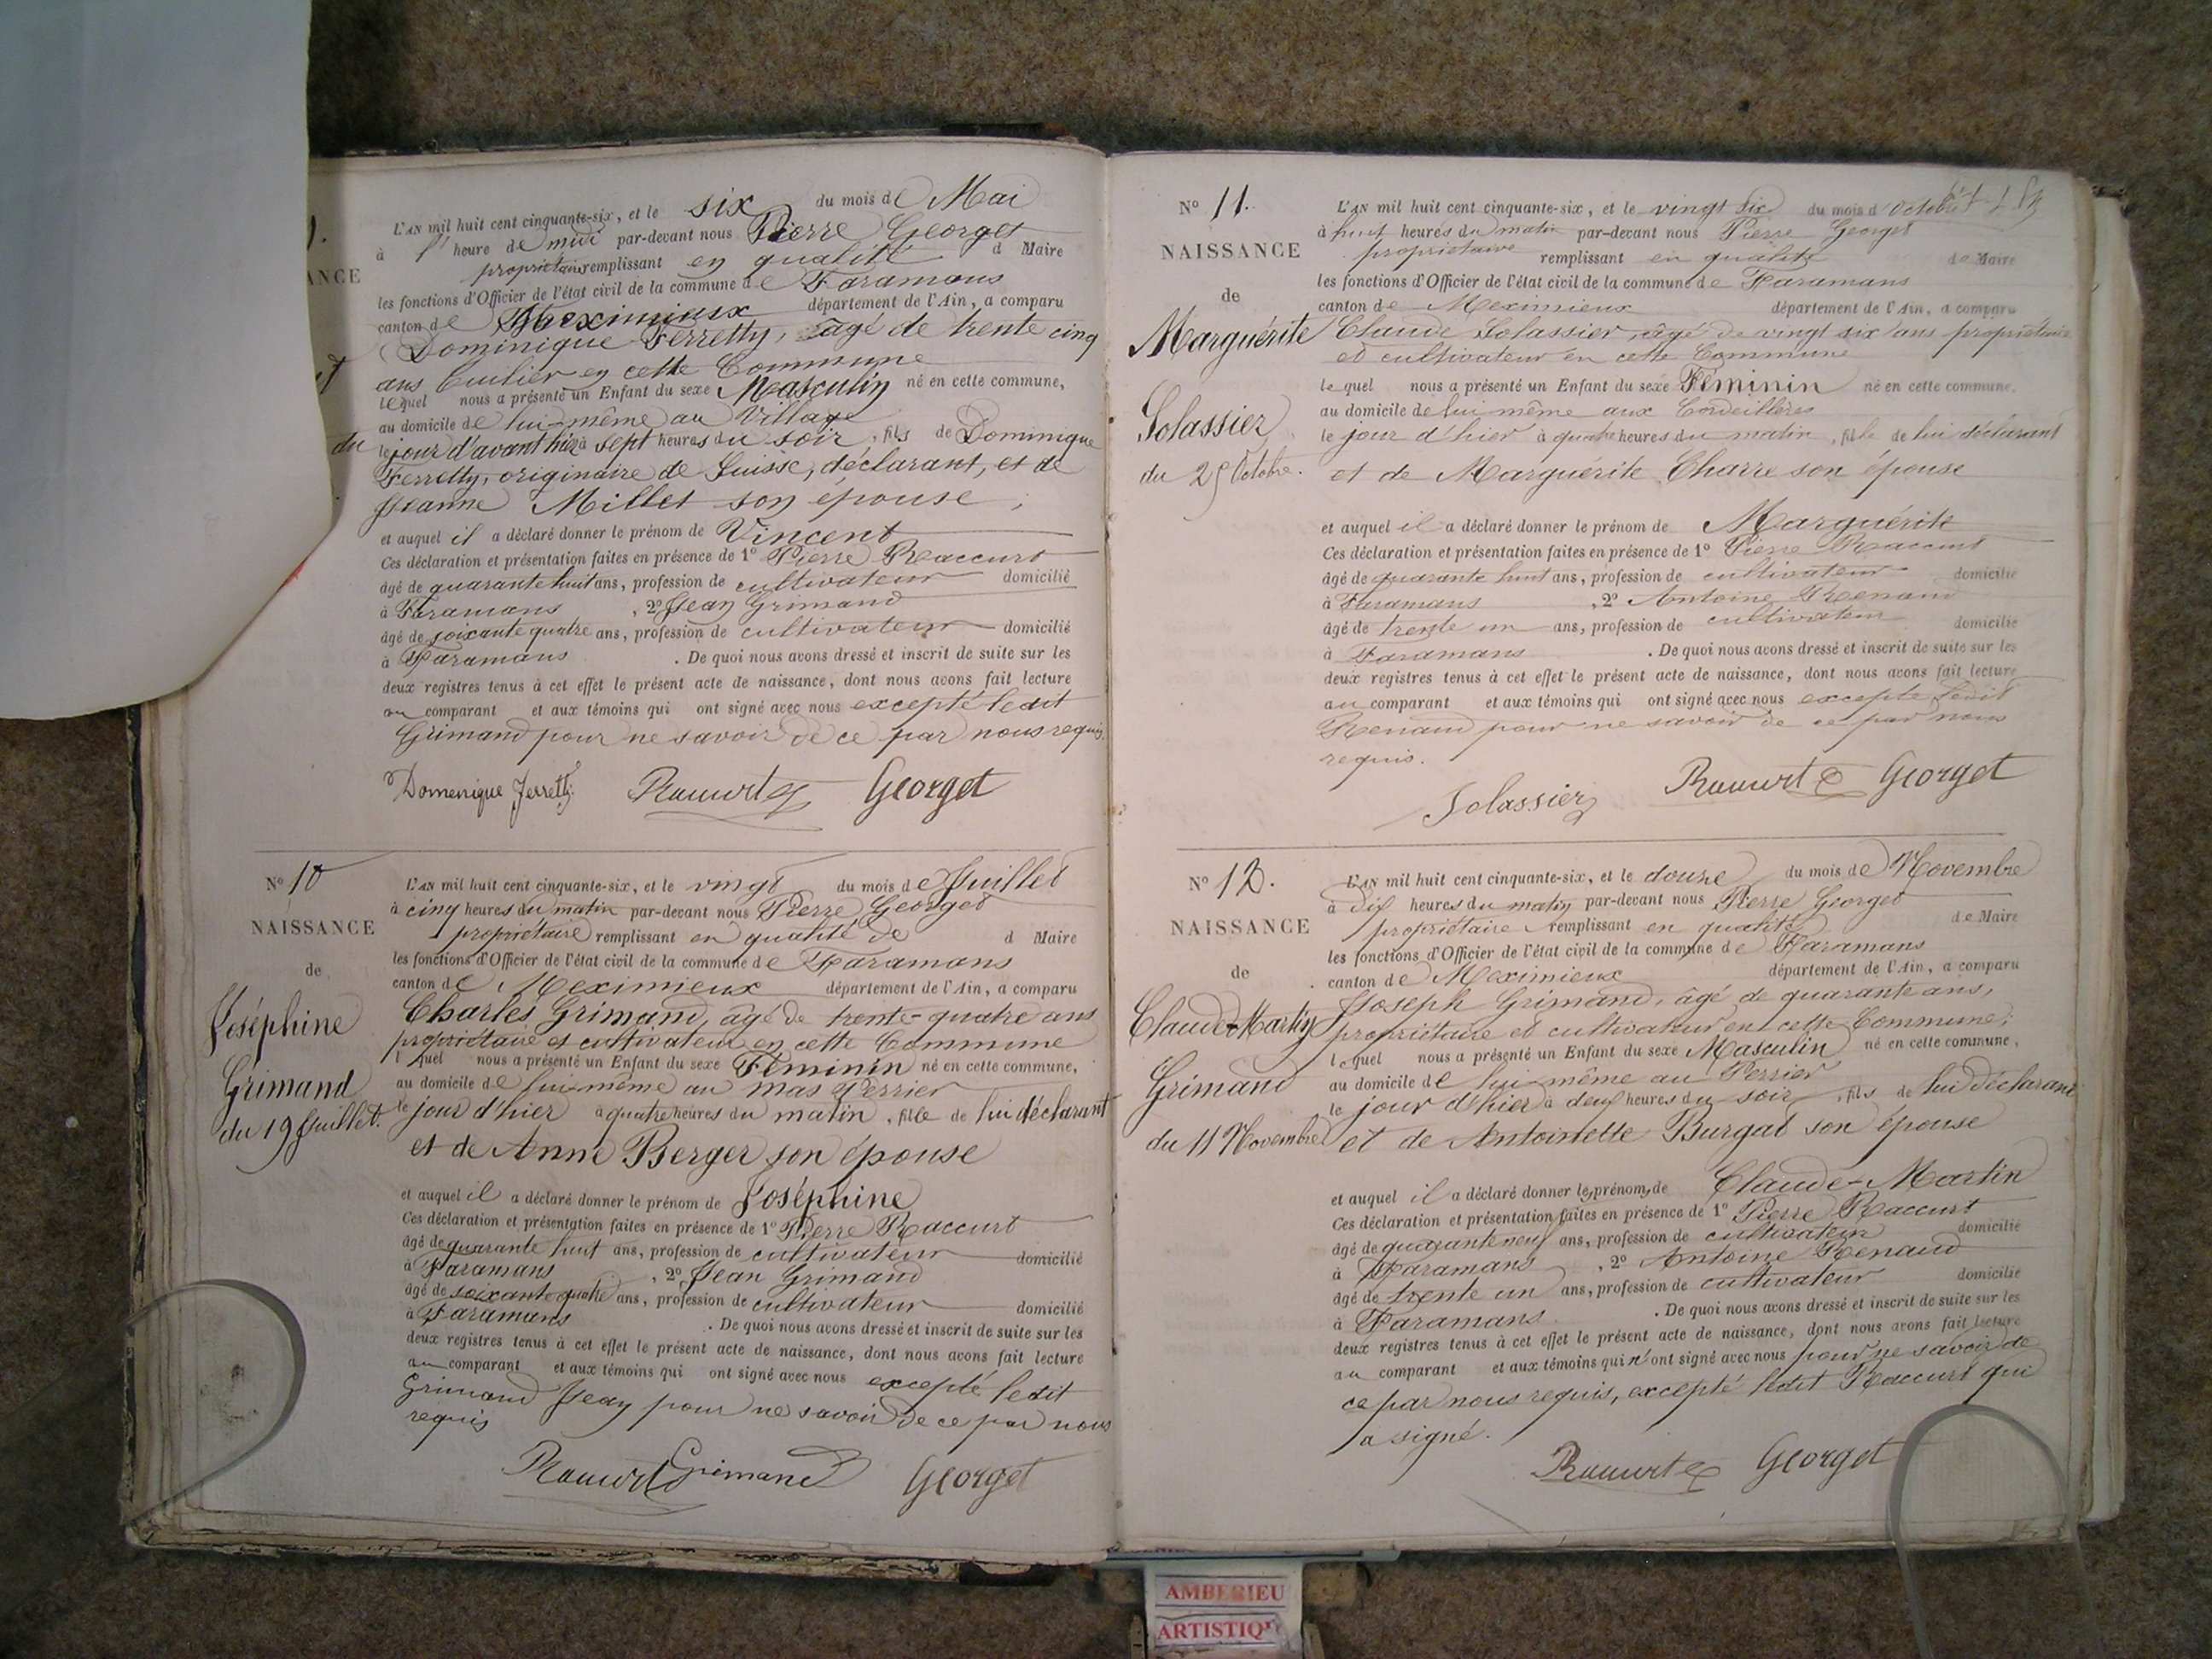 L'AN mil huit cent cinquante-six, et le six du mois de Mai
à l' heure de midi par-devant nous Pierre Georget
propriétaire remplissant en qualité d Maire
les fonctions d'Officier de l'état civil de la commune de Faramans
canton de Meximieux département de l'Ain, a comparu
Dominique Ferretty, âgé de trente cinq
ans Tuilier en cette Commune
lequel nous a présenté un Enfant du sexe Masculin né en cette commune,
au domicile de lui-même au Village
du
le jour d'avant hier à sept heures du soir, fils de Dominique
Ferretty, originaire de Suisse, déclarant, et de
Jeanne Millet son épouse;
et auquel il a déclaré donner le prénom de Vincent
Ces déclaration et présentation faites en présence de 1° Pierre Raccurt
âgé de quarante huit ans, profession de cultivateur domicilié
à Faramans, 2° Jean Grimand
âgé de soixante quatre ans, profession de cultivateur domicilié
à Faramans. De quoi nous avons dressé et inscrit de suite sur les
deux registres tenus à cet effet le présent acte de naissance, dont nous avons fait lecture
au comparant et aux témoins qui ont signé avec nous excepté ledit
Grimand pour ne savoir de ce par nous requis.
Domenique Ferretti Raccurt Georget
N° 10
NAISSANCE
de
Joséphine
Grimand
du 19 Juillet.
L'AN mil huit cent cinquante-six, et le vingt du mois de Juillet
à cinq heures du matin par-devant nous Pierre Georget
propriétaire remplissant en qualité de d Maire
les fonctions d'Officier de l'état civil de la commune de Faramans
canton de Meximieux département de l'Ain, a comparu
Charles Grimand, âgé de trente-quatre ans
propriétaire et cultivateur en cette Commune
l quel nous a présenté un Enfant du sexe Féminin né en cette commune,
au domicile de lui-même au mas Perrier
le jour d'hier à quatre heures du matin, fille de lui déclarant
et de Anne Berger son épouse
et auquel il a déclaré donner le prénom de Joséphine
Ces déclaration et présentation faites en présence de 1° Pierre Raccurt
âgé de quarante huit ans, profession de cultivateur domicilié
à Faramans, 2° Jean Grimand
âgé de soixante quatre ans, profession de cultivateur domicilié
à Faramans. De quoi nous avons dressé et inscrit de suite sur les
deux registres tenus à cet effet le présent acte de naissance, dont nous avons fait lecture
au comparant et aux témoins qui ont signé avec nous excepté ledit
Grimand Jean pour ne savoir de ce par nous
requis
Raccurt Grimand Georget
N° 11.
NAISSANCE
de
Marguérite
Solassier
du 25 Octobre.
L'AN mil huit cent cinquante-six, et le vingt six du mois d'Octobre
à huit heures du matin par-devant nous Pierre Georget
propriétaire remplissant en qualité de Maire
les fonctions d'Officier de l'état civil de la commune de Faramans
canton de Meximieux département de l'Ain, a comparu
Claude Solassier, âgé de vingt six ans propriétaire
et cultivateur en cette Commune
lequel nous a présenté un Enfant du sexe Féminin né en cette commune,
au domicile de lui même aux Cordeillères
le jour d'hier à quatre heures du matin, fille de lui déclarant
et de Marguérite Charre son épouse
et auquel il a déclaré donner le prénom de Marguérite
Ces déclaration et présentation faites en présence de 1° Pierre Raccurt
âgé de quarante huit ans, profession de cultivateur domicilié
à Faramans, 2° Antoine Renaud
âgé de trente un ans, profession de cultivateur domicilié
à Faramans. De quoi nous avons dressé et inscrit de suite sur les
deux registres tenus à cet effet le présent acte de naissance, dont nous avons fait lecture
au comparant et aux témoins qui ont signé avec nous excepté ledit
Renaud pour ne savoir de ce par nous
requis.
Solassier Raccurt Georget
N° 12.
NAISSANCE
de
Claude-Martin
Grimand
du 11 Novembre
L'AN mil huit cent cinquante-six, et le douze du mois de Novembre
à dix heures du matin par-devant nous Pierre Georget
propriétaire remplissant en qualité de Maire
les fonctions d'Officier de l'état civil de la commune de Faramans
canton de Meximieux département de l'Ain, a comparu
Joseph Grimand, âgé de quarante ans,
propriétaire et cultivateur en cette Commune;
lequel nous a présenté un Enfant du sexe Masculin né en cette commune,
au domicile de lui-même au Perrier
le jour d'hier à deux heures du soir, fils de lui déclarant
et de Antoinette Burgat son épouse
et auquel il a déclaré donner les prénoms de Claude-Martin
Ces déclaration et présentation faites en présence de 1° Pierre Raccurt
âgé de quarante neuf ans, profession de cultivateur domicilié
à Faramans, 2° Antoine Renaud
âgé de trente un ans, profession de cultivateur domicilié
à Faramans. De quoi nous avons dressé et inscrit de suite sur les
deux registres tenus à cet effet le présent acte de naissance, dont nous avons fait lecture
au comparant et aux témoins qui n'ont signé avec nous pour ne savoir de
ce par nous requis, excepté ledit Raccurt qui
a signé.
Raccurt Georget
AMBERIEU
ARTISTIQ